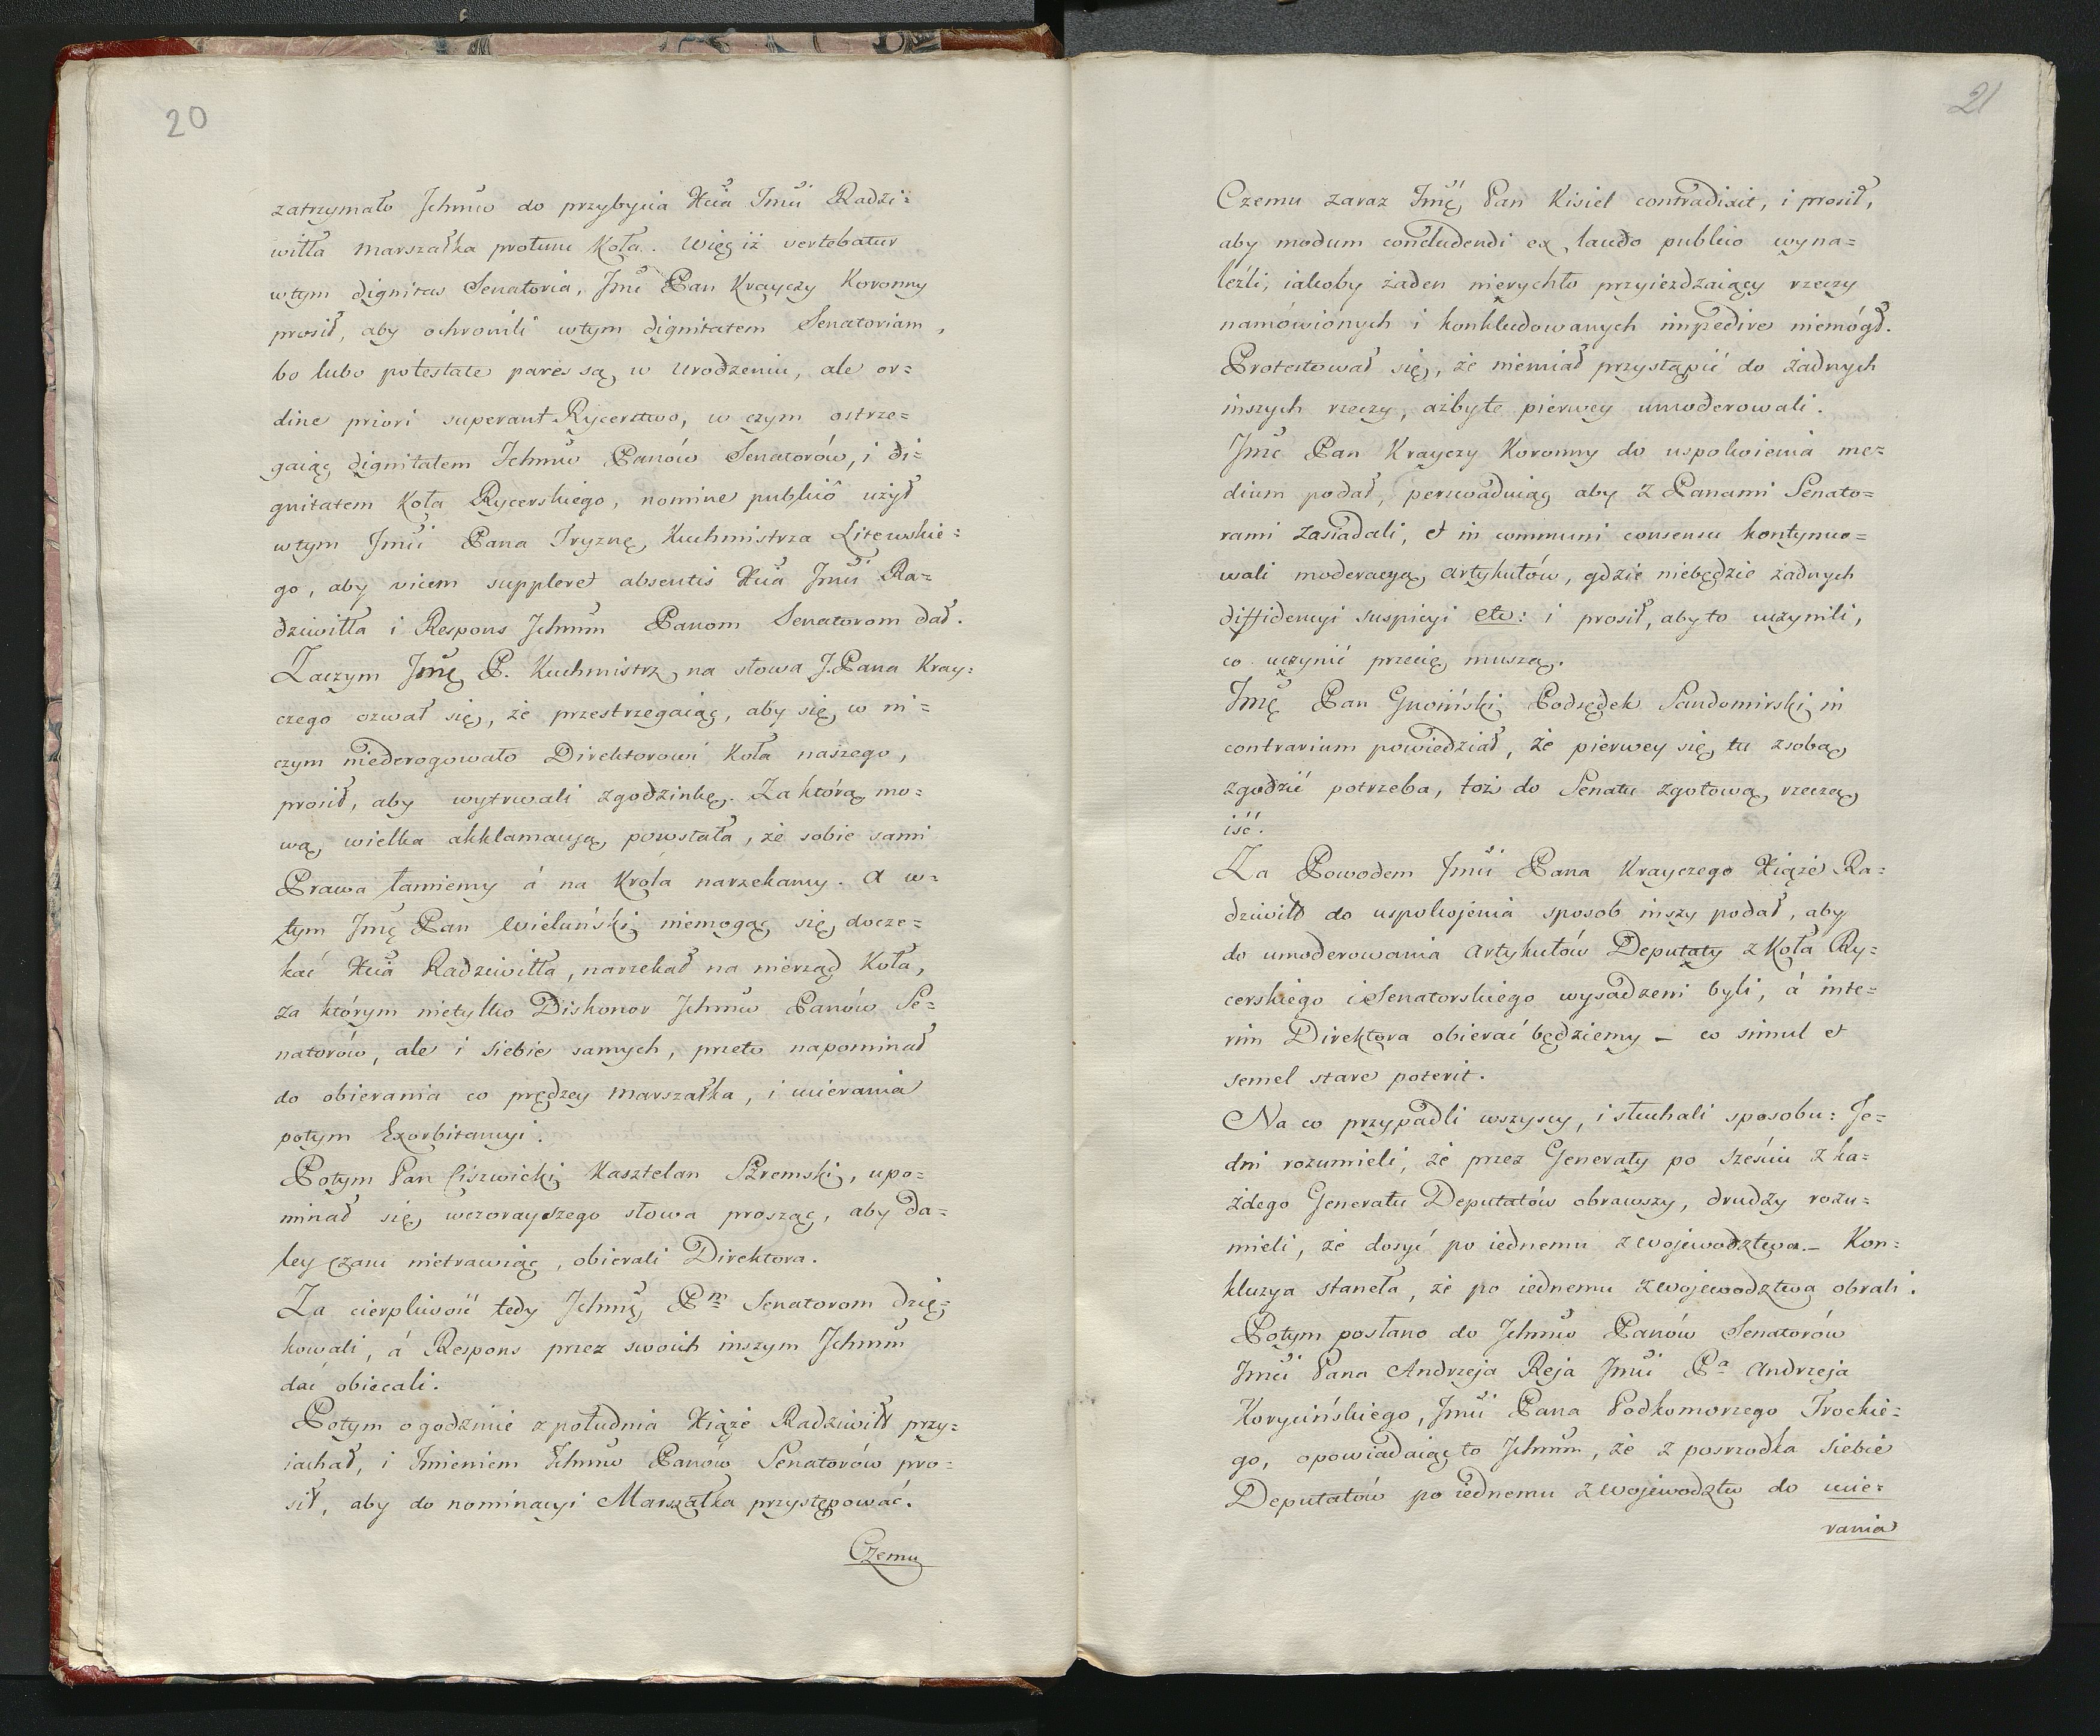 20
zatrzymało Jchmw do przybycia Xcia Jmci Radzi=
wiłła Marszałka protunc Koła. Więc iż vertebatur
wtym dignitas Senatoria, Jmć Pan Krayczy Koronny
prosił, aby ochronili wtym dignitatem Senatoriam,
bo lubo potestate pares są w Urodzeniu, ale or=
dine priori superant Rycerstwo, w czym ostrze=
gaiąc dignitatem Ichmw Panów Senatorów, i di=
gnitatem Koła Rycerskiego, nomine publicô użył
wtym Jmci Pana Tryznę, Kuchmistrza Litewskie=
go, aby vicem supplere absentis Xcia Jmci Ra=
dziwiłła i Respons Jchmm Panom Senatorom dał.
Zaczym Jmć P. Kuchmistrz na słowa J. Pana Kray=
czego ozwał się, że przestrzegaiąc, aby się w ni=
czym niederogowało Direktorowi Koła naszego,
prosił, aby wytrwali zgodzinkę. Za którą mo=
wą, wielka akklamacyą powstała, że sobie sami
Prawa łamiemy á na Króla narzekamy. A w=
tym Jmć Pan Wieluński niemogąc się docze=
kać Xcia Radziwiłła, narzekał na nierząd Koła,
za którym nietylko Dishonor Jchmw Panów Se=
natorów, ale i siebie samych, przeto napominał
do obierania co prędzey Marszałka, i ucierania
potym Exorbitancyi.
Potym Pan Ciświcki Kasztelan Szremski, upo=
minał się wczorayszego słowa prosząc, aby da=
ley czasu nietrawiąc, obierali Direktora.
Za cierpliwość tedy Jchmć Pm Senatorom dzię=
kowali, á Respons przez swoich inszym Jchmm
dać obiecali.
Potym o godzinie z południa Xiąże Radziwiłł przy=
iachał, i Imieniem Ichmw Panów Senatorów pro=
sił, aby do nominacyi Marszałka przystępować.
Czemu
21
Czemu zaraz Jmć Pan Kisiel contradixit, i prosił,
aby modum concludendi ex laudo publico wyna=
leźli, iakoby żaden nierychło przyieżdzaiący rzeczy
namówionych i konkludowanych impedire niemógł.
Protestował się, że niemiał przystąpić do żadnych
inszych rzeczy, ażbyte pierwey umoderowali.
Jmć Pan Krayczy Koronny do uspokoienia me=
dium podał, perswaduiąc aby z Panami Senato=
rami zasiadali, et in communi consensu kontynuo=
wali moderacyą Artykułów, gdzie niebędzie żadnych
diffidencyi suspicyi etc: i prosił, aby to uczynili,
co uczynić przecię muszą.
Jmć Pan Gnoiński Podsędek Sandomirski in
contrarium powiedział, że pierwey się tu zsobą
zgodzić potrzeba, toż do Senatu zgotową rzeczą
iść.
Za Powodem Jmci Pana Krayczego Xiąże Ra=
dziwiłł do uspokojenia sposob inszy podał, aby
do umoderowania Artykułów Deputaty z Koła Ry=
cerskiego i Senatorskiego wysadzeni byli, á inte=
rim Direktora obierać będziemy – co simul et
semel stare poterit.
Na co przypadli wszyscy, i słuchali sposobu: Je=
dni rozumieli, że przez Generały po sześciu z ka=
żdego Generału Deputatów obrawszy, drudzy rozu=
mieli, że dosyć po iednemu z Wojewodztwa. – Kon=
kluzya staneła, że po iednemu z Wojewodztwa obrali.
Potym posłano do Jchmw Panów Senatorów
Jmci Pana Andrzeja Reja Jmci Pa Andrzeja
Korycińskiego, Jmci Pana Podkomorzego Trockie=
go, opowiadaiąc to Jchmm, że z posrzodka siebie
Deputatów po iednemu z Wojewodztw do ucie=
rania